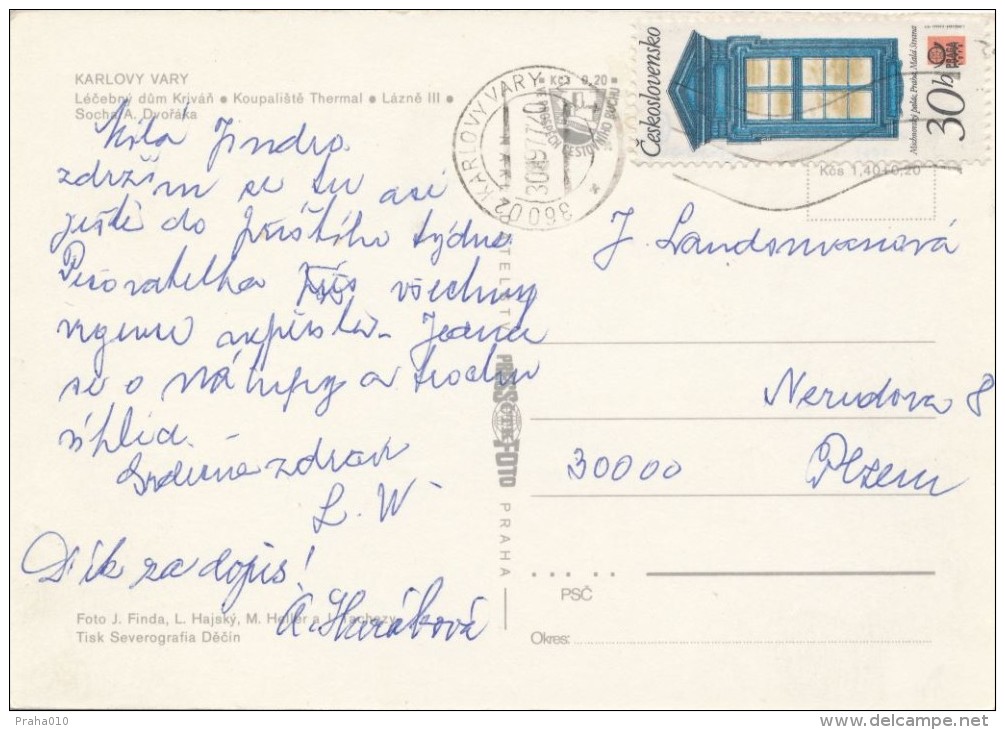 KARLOVY VARY
Léčebný dům Kriváň • Koupaliště Thermal • Lázně III •
Socha A. Dvořáka
Milá Jindro.
zdržím se tu asi
ještě do příštího týdne
Pečovatelka všechny
Jedná
se o nákupy a trochu
úhlid.
Srdečně zdraví
L. W
Dík za dopis!
Foto J. Finda, L. Hajský, M. Heller a J. Tachezy
Tisk Severografia Děčín
PRESSFOTO PRAHA
36002 KARLOVY VARY 2
CESTOVNÍHO RUCHU
Kčs 0,20
Československo
30h
PRAGA
1978
Kčs 1,40+0,20
J. Landsmanová
Nerudova 8
30000 Plzeň
PSČ
Okres:
Praha010
www.delcampe.net